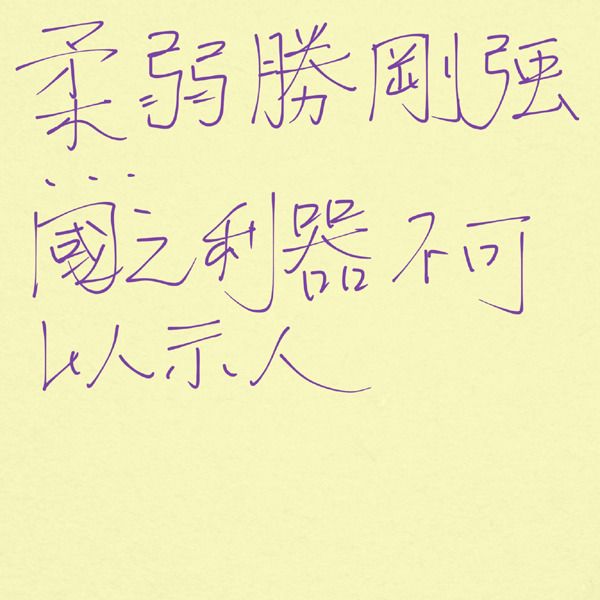 柔弱勝剛强
...
國之利器不可
以示人